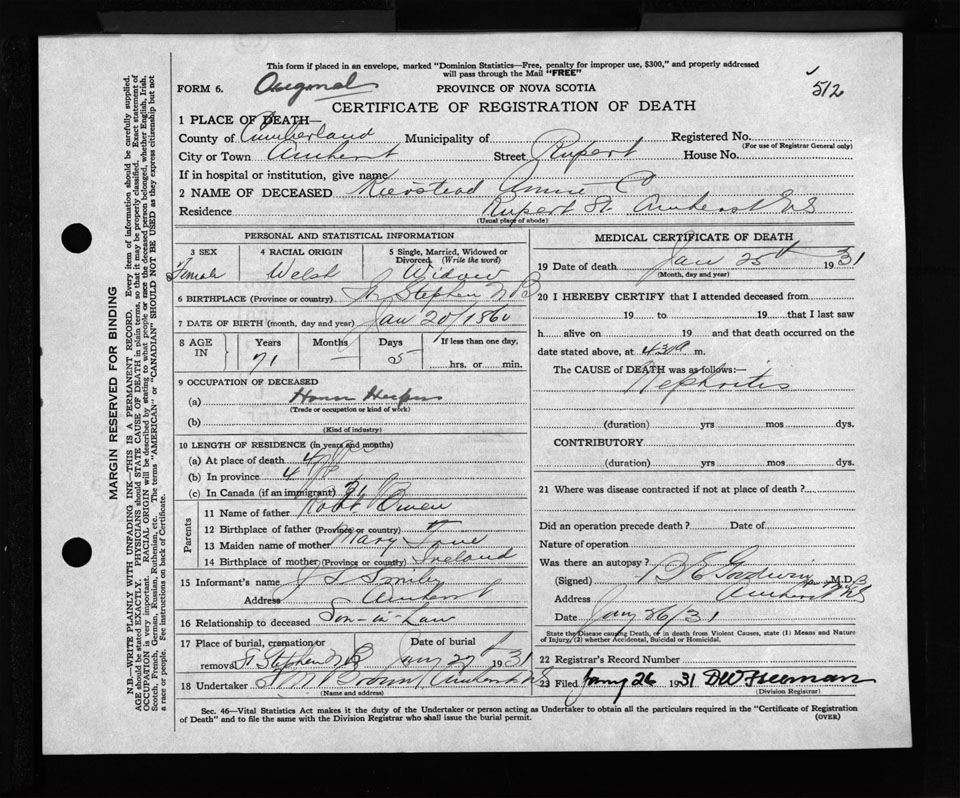 This form if placed in an envelope, marked "Dominion Statistics—Free, penalty for improper use, $300," and properly addressed
will pass through the Mail "FREE"
FORM 6. Original PROVINCE OF NOVA SCOTIA 512
CERTIFICATE OF REGISTRATION OF DEATH
1 PLACE OF DEATH—
County of Cumberland Municipality of Registered No.
(For use of Registrar General only)
City or Town Amherst Street Rupert House No.
If in hospital or institution, give name
2 NAME OF DECEASED Keirstead Annie C
Residence Rupert St. Amherst N S
(Usual place of abode)
PERSONAL AND STATISTICAL INFORMATION
3 SEX 4 RACIAL ORIGIN 5 Single, Married, Widowed or
Divorced. (Write the word)
Female Welsh Widow
6 BIRTHPLACE (Province or country) St Stephen N B
7 DATE OF BIRTH (month, day and year) Jan 20/1860
8 AGE IN Years Months Days If less than one day,
71 — 5 hrs. or min.
9 OCCUPATION OF DECEASED
(a) House Keeper
(Trade or occupation or kind of work)
(b)
(Kind of industry)
10 LENGTH OF RESIDENCE (in years and months)
(a) At place of death 4 yrs
(b) In province 4
(c) In Canada (if an immigrant) 71
Parents
11 Name of father Robt Owen
12 Birthplace of father (Province or country)
13 Maiden name of mother Mary
14 Birthplace of mother (Province or country) Ireland
15 Informant's name
Address Amherst
16 Relationship to deceased Son-in-Law
17 Place of burial, cremation or Date of burial
removal St Stephen N B Jany 27th 1931
18 Undertaker Brown Amherst N S
(Name and address)
MEDICAL CERTIFICATE OF DEATH
19 Date of death Jan 25th 1931
(Month, day and year)
20 I HEREBY CERTIFY that I attended deceased from
19 to 19 that I last saw
h alive on 19 and that death occurred on the
date stated above, at 4 30 a m.
The CAUSE of DEATH was as follows:—
Nephritis
(duration) yrs mos dys.
CONTRIBUTORY
(duration) yrs mos dys.
21 Where was disease contracted if not at place of death?
Did an operation precede death? Date of
Nature of operation
Was there an autopsy?
(Signed) D E Goodwin M.D.
Address Amherst N S
Date Jany 26/31
State the Disease causing Death, or in death from Violent Causes, state (1) Means and
Nature of Injury, (2) whether Accidental, Suicidal or Homicidal.
22 Registrar's Record Number
23 Filed Jany 26 1931 D W Freeman
(Division Registrar)
Sec. 46—Vital Statistics Act makes it the duty of the Undertaker or person acting as Undertaker to obtain all the particulars required in the "Certificate of Registration
of Death" and to file the same with the Division Registrar who shall issue the burial permit.
(OVER)
MARGIN RESERVED FOR BINDING
N.B.—WRITE PLAINLY WITH UNFADING INK—THIS IS A PERMANENT RECORD. Every item of information should be carefully supplied.
AGE should be stated EXACTLY. PHYSICIANS should STATE CAUSE OF DEATH in plain terms, so that it may be properly classified. Exact statement of
OCCUPATION is very important. RACIAL ORIGIN will be described by stating to what people or race the deceased person belonged, whether English, Irish,
Scotch, French, German, Russian, Ruthenian, etc. The terms "AMERICAN" or "CANADIAN" SHOULD NOT BE USED as they express citizenship but not
a race or people. See instructions on back of Certificate.